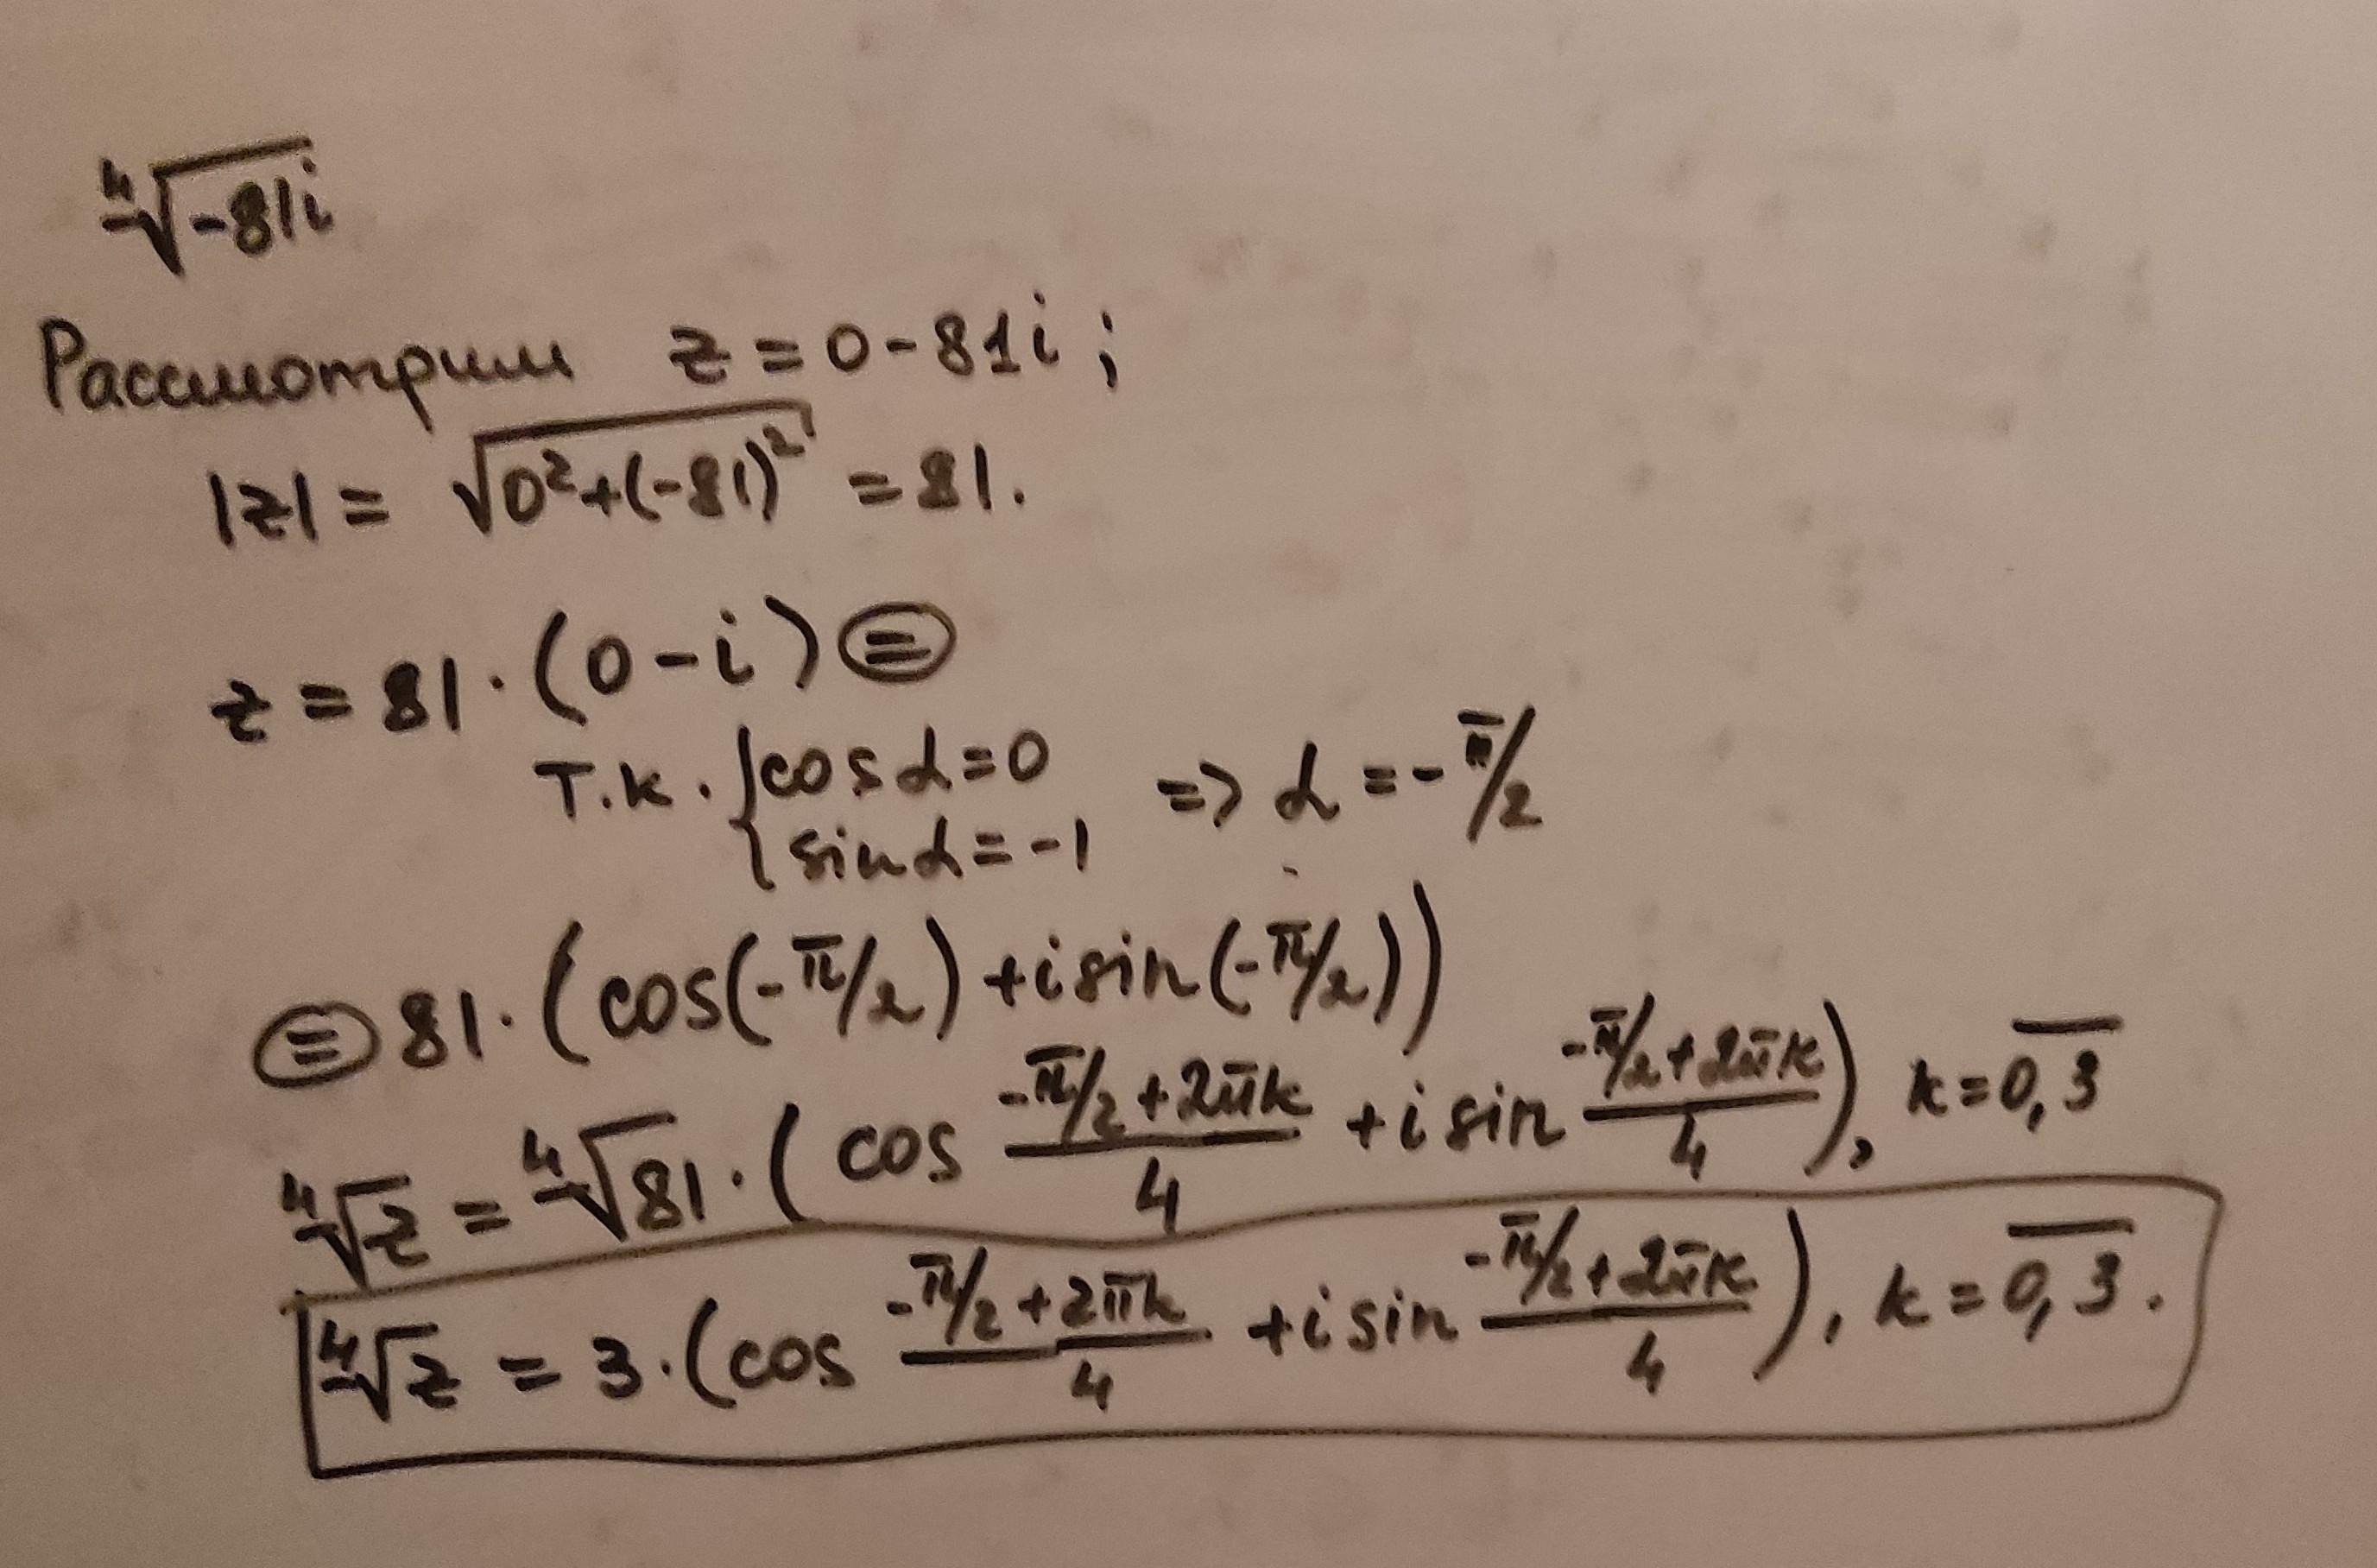 ⁴√-81i
Рассмотрим z = 0 - 81i ;
|z| = √0² + (-81)² = 81.
z = 81 · (0 - i) ⊜
т.к. { cos α = 0
sin α = -1 => α = - π/2
⊜ 81 · (cos(-π/2) + i sin(-π/2))
⁴√z = ⁴√81 · (cos (-π/2 + 2πk)/4 + i sin (-π/2 + 2πk)/4), k = 0, 3
⁴√z = 3 · (cos (-π/2 + 2πk)/4 + i sin (-π/2 + 2πk)/4), k = 0, 3.